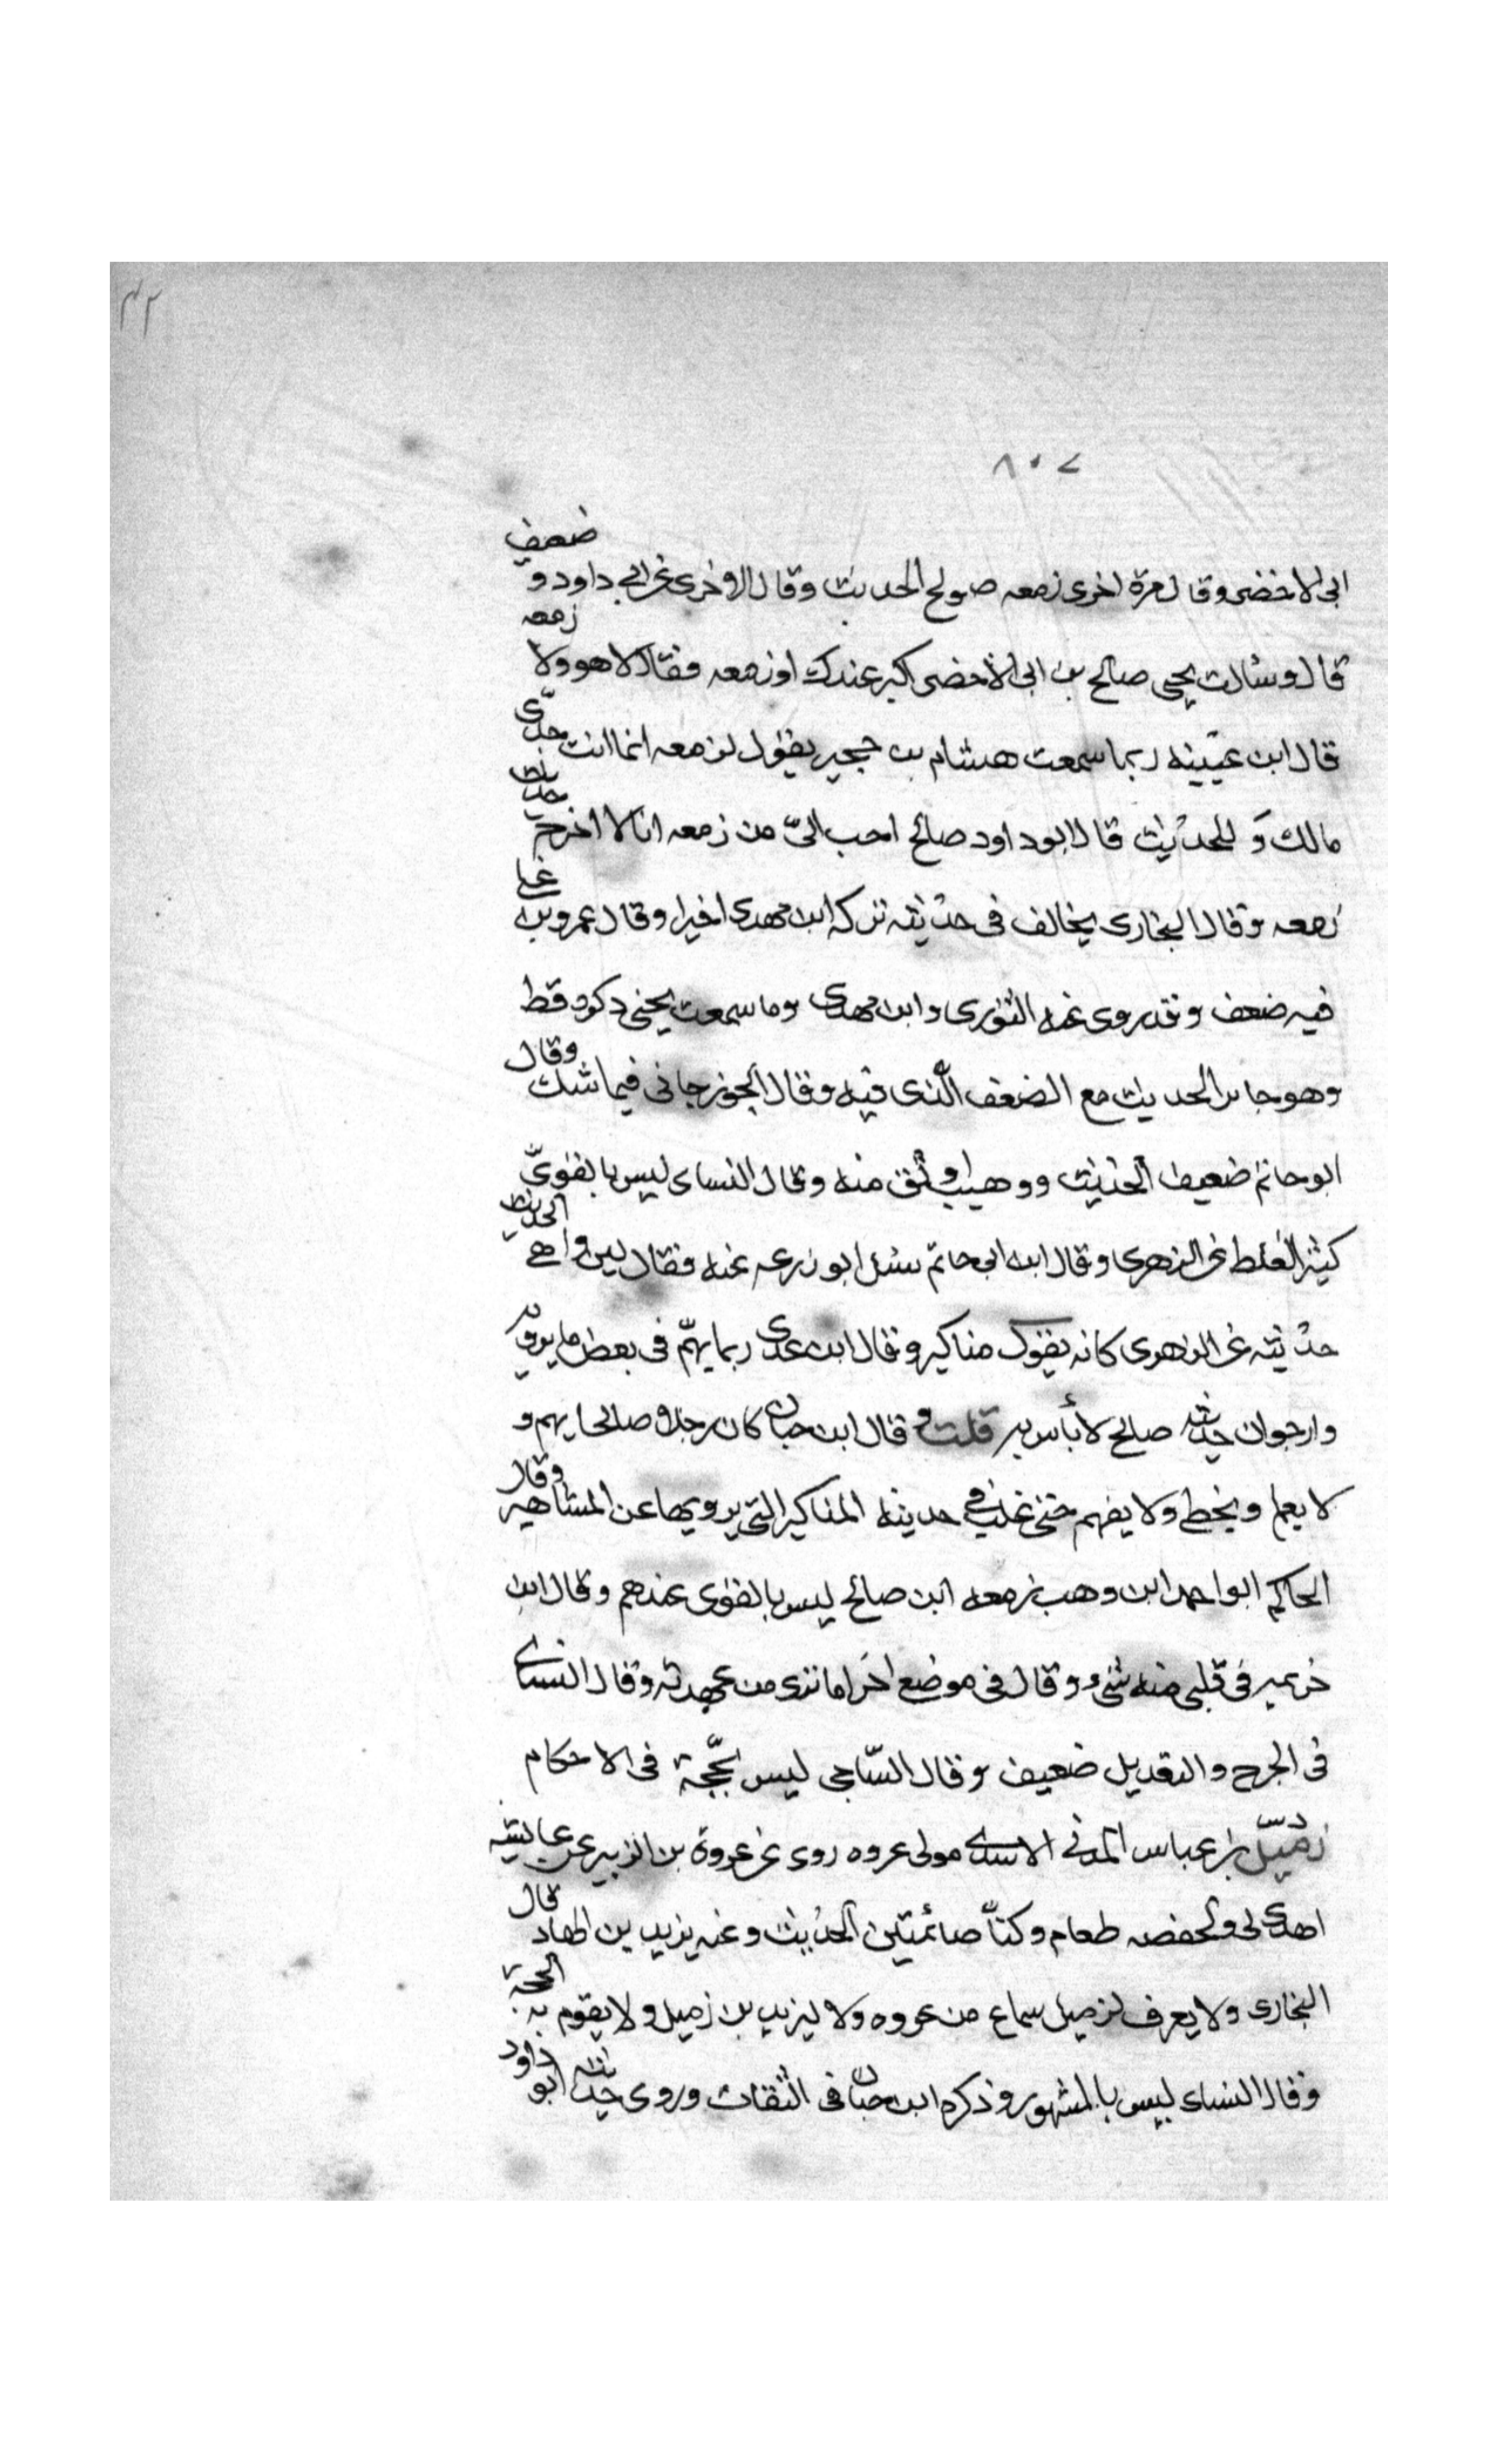 ٣٢
٨٠٧
ابى الاخضر وقال مرة اخرى زمعه صولح الحديث وقال الاخرى عن ابى داود و ضعيف
قال وسالت يحيى صالح بن ابى الاخضر اكبر عندك او زمعه فقال لا هو ولا زمعه
قال ابن عيينه ربما سمعت هشام بن حجير يقول لزمعه انما انت جدى
مالك وللحديث قال ابو داود صالح احب الىّ من زمعه انا لا اخرج حديث
زمعه وقال البخارى يخالف فى حديثه تركه ابن مهدى اخيرا وقال عمرو بن على
فيه ضعف وقد روى عنه الثورى وابن مهدى وما سمعت يحيى ذكره قط
وهو جائز الحديث مع الضعف الّذى فيه وقال الجوزجانى فيما شك وقال
ابو حاتم ضعيف الحديث ووهيب اوثق منه وقال النساى ليس بالقوىّ
كثير الغلط عن الزهرى وقال ابن ابى حاتم سئل ابو زرعه عنه فقال لين واهى الحديث
حديثه عن الزهرى كانه يقول مناكير وقال ابن عدى ربما يهمّ فى بعض ما يرويه
وارجوان حديثه صالح لا بأس به قلت و قال ابن حبان كان رجلا صالحا يهم و
لا يعلم ويخطى ولا يفهم حتى غلب فى حديثه المناكير التى يرويها عن المشاهير وقال
الحاكم ابو احمد ابن وهب زمعه ابن صالح ليس بالقوى عندهم وقال ابن
خزيمه فى قلبى منه شىء وقال فى موضع اخر اما تنرى من عهدته وقال النساى
فى الجرح والتعديل ضعيف وقال السّاجى ليس بحّجة فى الاحكام
زميّل بن عباس المدنى الاسدى مولى عروه روى عن عروة بن الزبير عن عايشه
اهدى لى ولحفصه طعام وكنّا صائمتين الحديث وعنه يزيد بن الهاد قال
البخارى ولا يعرف لزميل سماع من عروه ولا ليزيد بن زميل ولا يقوم به الحجة
وقال النساى ليس بالمشهور وذكره ابن حبان فى الثقات وروى حديثه ابو داود